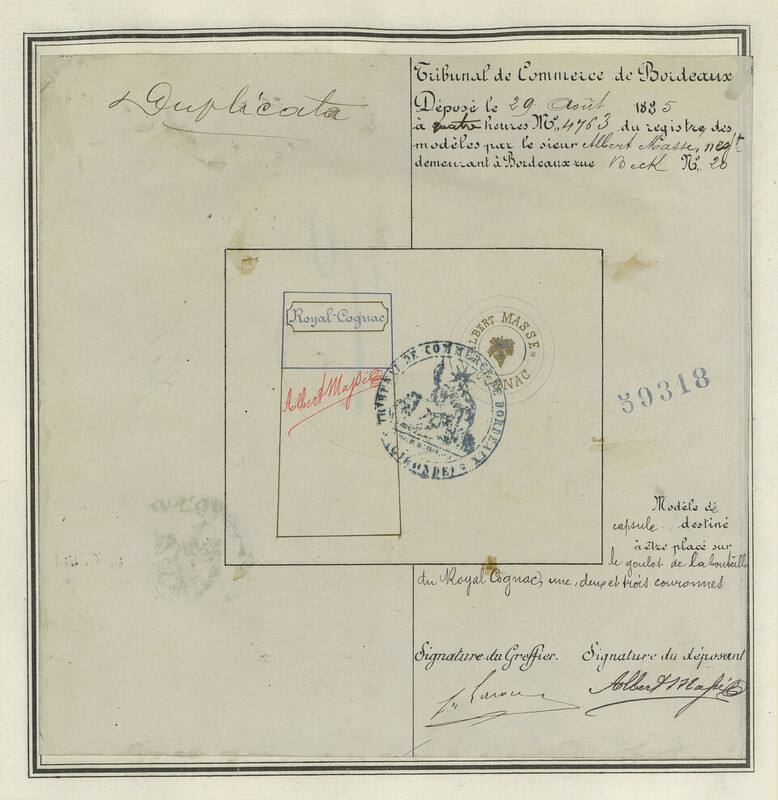 Duplicata
Tribunal de Commerce de Bordeaux
Déposé le 29 Août 1885
à quatre heures Nº 4763 du registre des
modèles par le sieur Albert Masse, negt
demeurant à Bordeaux rue Beck Nº 20
Royal-Cognac
Albert Massé
ALBERT MASSE
COGNAC
TRIBUNAL DE COMMERCE DE BORDEAUX
(GIRONDE)
59318
Modèle de
capsule destiné
à être placé sur
le goulot de la bouteille
du Royal Cognac, une, deux et trois couronnes
Signature du Greffier. Signature du déposant
Albert Massé